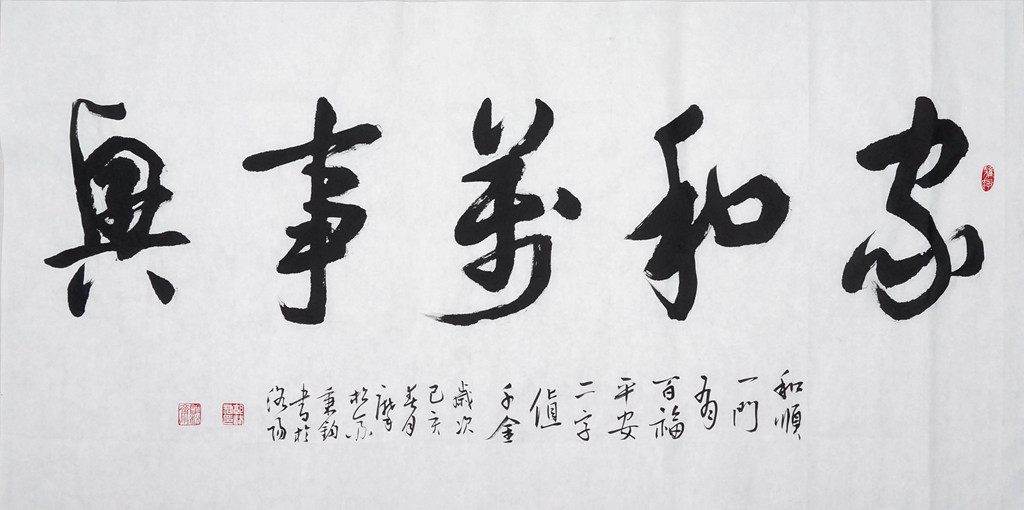 家和萬事興
和順
一門
有
百福
平安
二字
值
千金
歲次
己亥
春月
秉鈞
書於
洛陽